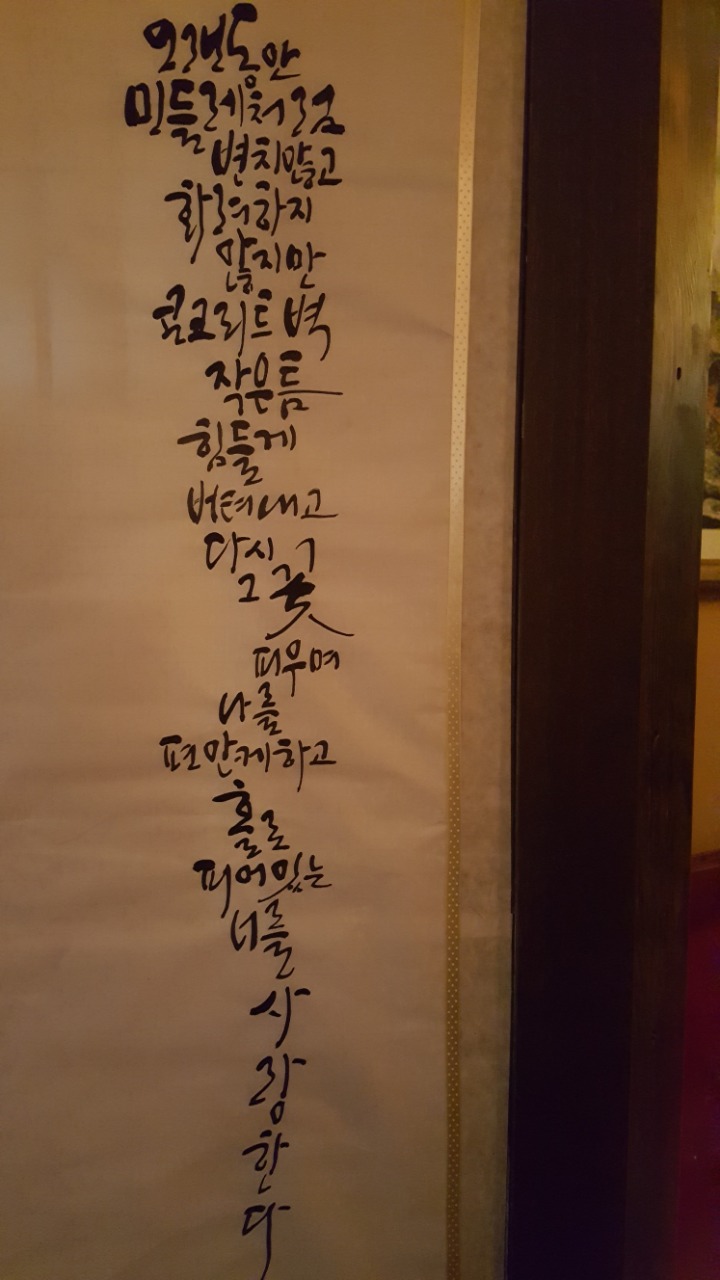 오랜동안
민들레처럼
변치않고
화려하지
않지만
콘크리트 벽
작은틈
힘들게
버텨내고
다시
그 꽃
피우며
나를
편안케하고
홀로
피어있는
너를
사
랑
한
다